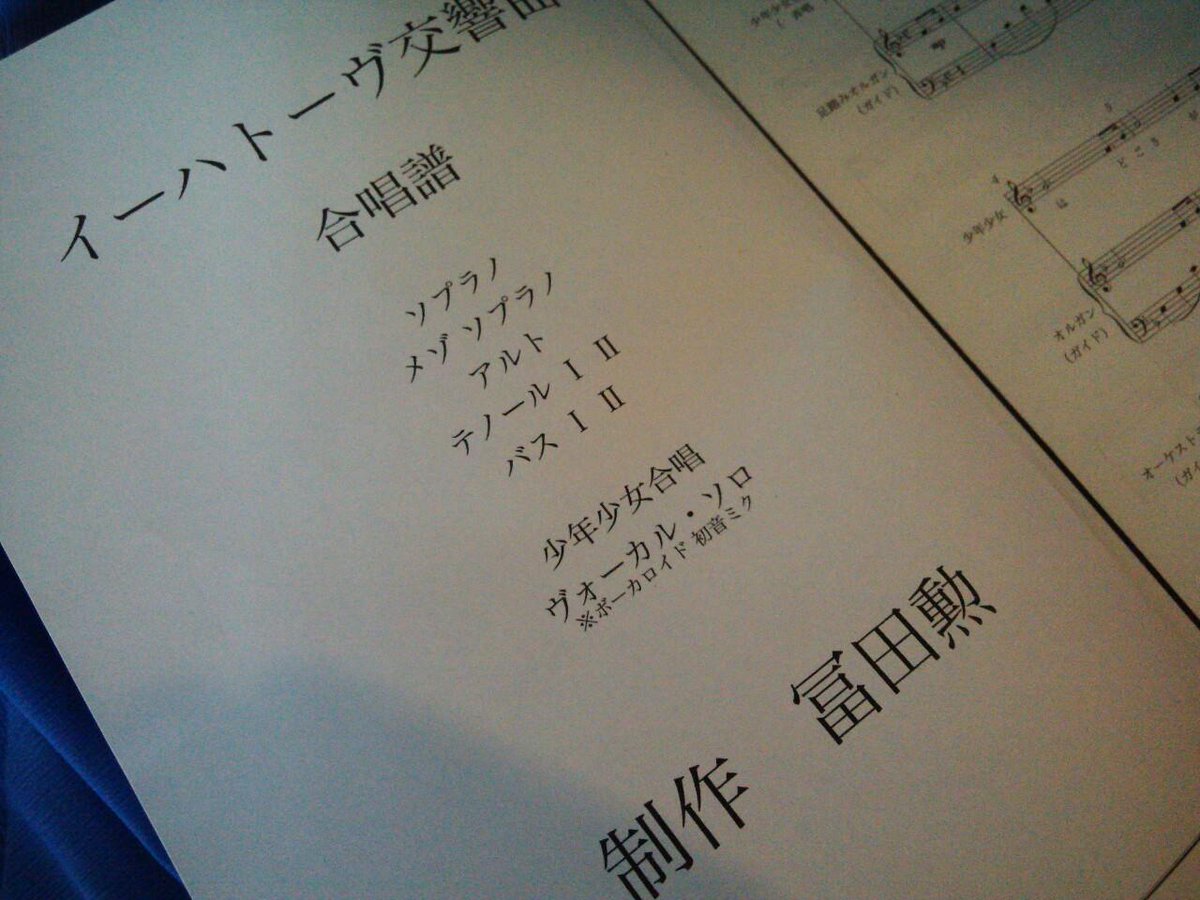 イーハトーヴ交響曲
合唱譜
ソプラノ
メゾ ソプラノ
アルト
テノール Ⅰ Ⅱ
バス Ⅰ Ⅱ
少年少女合唱
ヴォーカル・ソロ
※ボーカロイド 初音ミク
制作 冨田勲
足踏みオルガン
(ガイド)
4
5
少年少女
は
どこ
オルガン
(ガイド)